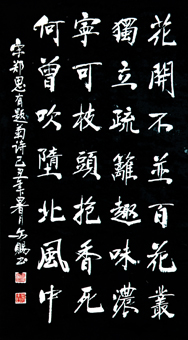 花開不並百花叢
獨立疏籬趣味濃
寧可枝頭抱香死
何曾吹墮北風中
宋鄭思肖題菊詩己丑年暑月